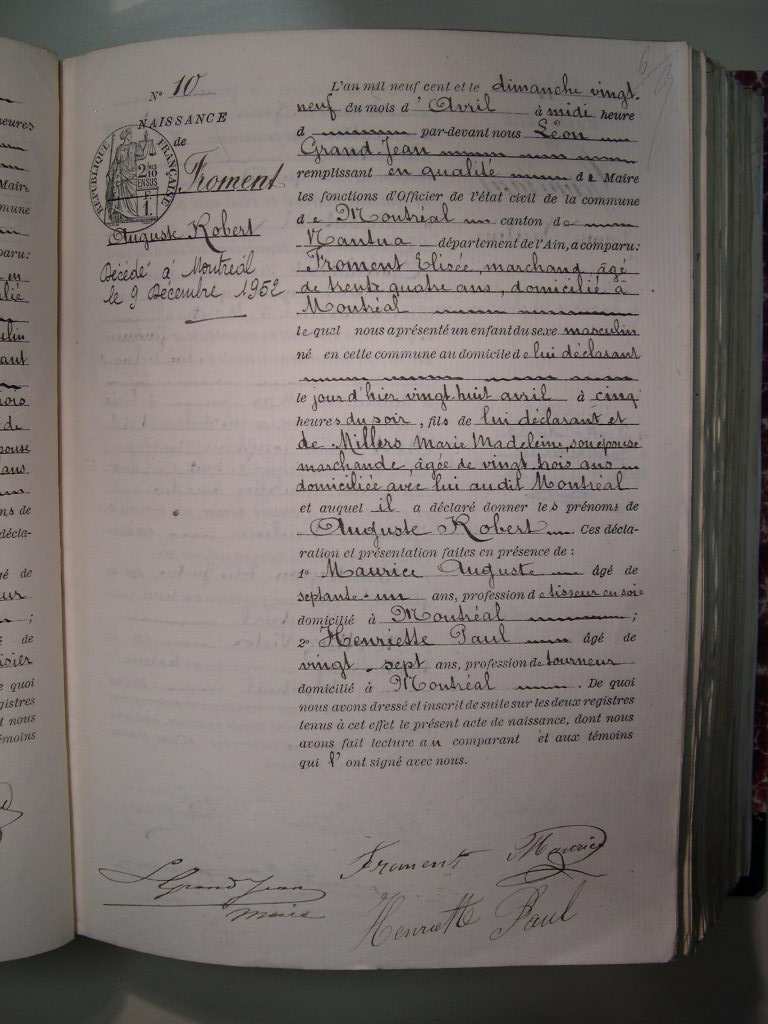 6
Nº 10
NAISSANCE
de
RÉPUBLIQUE FRANÇAISE
2/10 EN SUS
1F
Froment
Auguste Robert
Décédé à Montréal
le 9 Décembre 1952
L'an mil neuf cent et le dimanche vingt-
neuf du mois d'Avril à midi heure
d par-devant nous Léon
Grand Jean
remplissant en qualité de Maire
les fonctions d'Officier de l'état civil de la commune
de Montréal canton de
Nantua département de l'Ain, a comparu:
Froment Elisée, marchand, âgé
de trente quatre ans, domicilié à
Montréal
lequel nous a présenté un enfant du sexe masculin
né en cette commune au domicile de lui déclarant
le jour d'hier vingt huit avril à cinq
heures du soir, fils de lui déclarant et
de Millers Marie Madeleine, son épouse
marchande, âgée de vingt trois ans
domiciliée avec lui au dit Montréal
et auquel il a déclaré donner les prénoms de
Auguste Robert Ces décla-
ration et présentation faites en présence de :
1º Maurice Auguste âgé de
septante-un ans, profession de tisseur en soie
domicilié à Montréal ;
2º Henriette Paul âgé de
vingt-sept ans, profession de tourneur
domicilié à Montréal . De quoi
nous avons dressé et inscrit de suite sur les deux registres
tenus à cet effet le présent acte de naissance, dont nous
avons fait lecture au comparant et aux témoins
qui l'ont signé avec nous.
Froment Maurice
L Grand Jean
maire
Henriette Paul
heures
Maire
mmune
paru:
en
ulin
ant
de
pouse
ans
ms de
décla-
é de
eur
;
é de
isier
e quoi
gistres
t nous
témoins